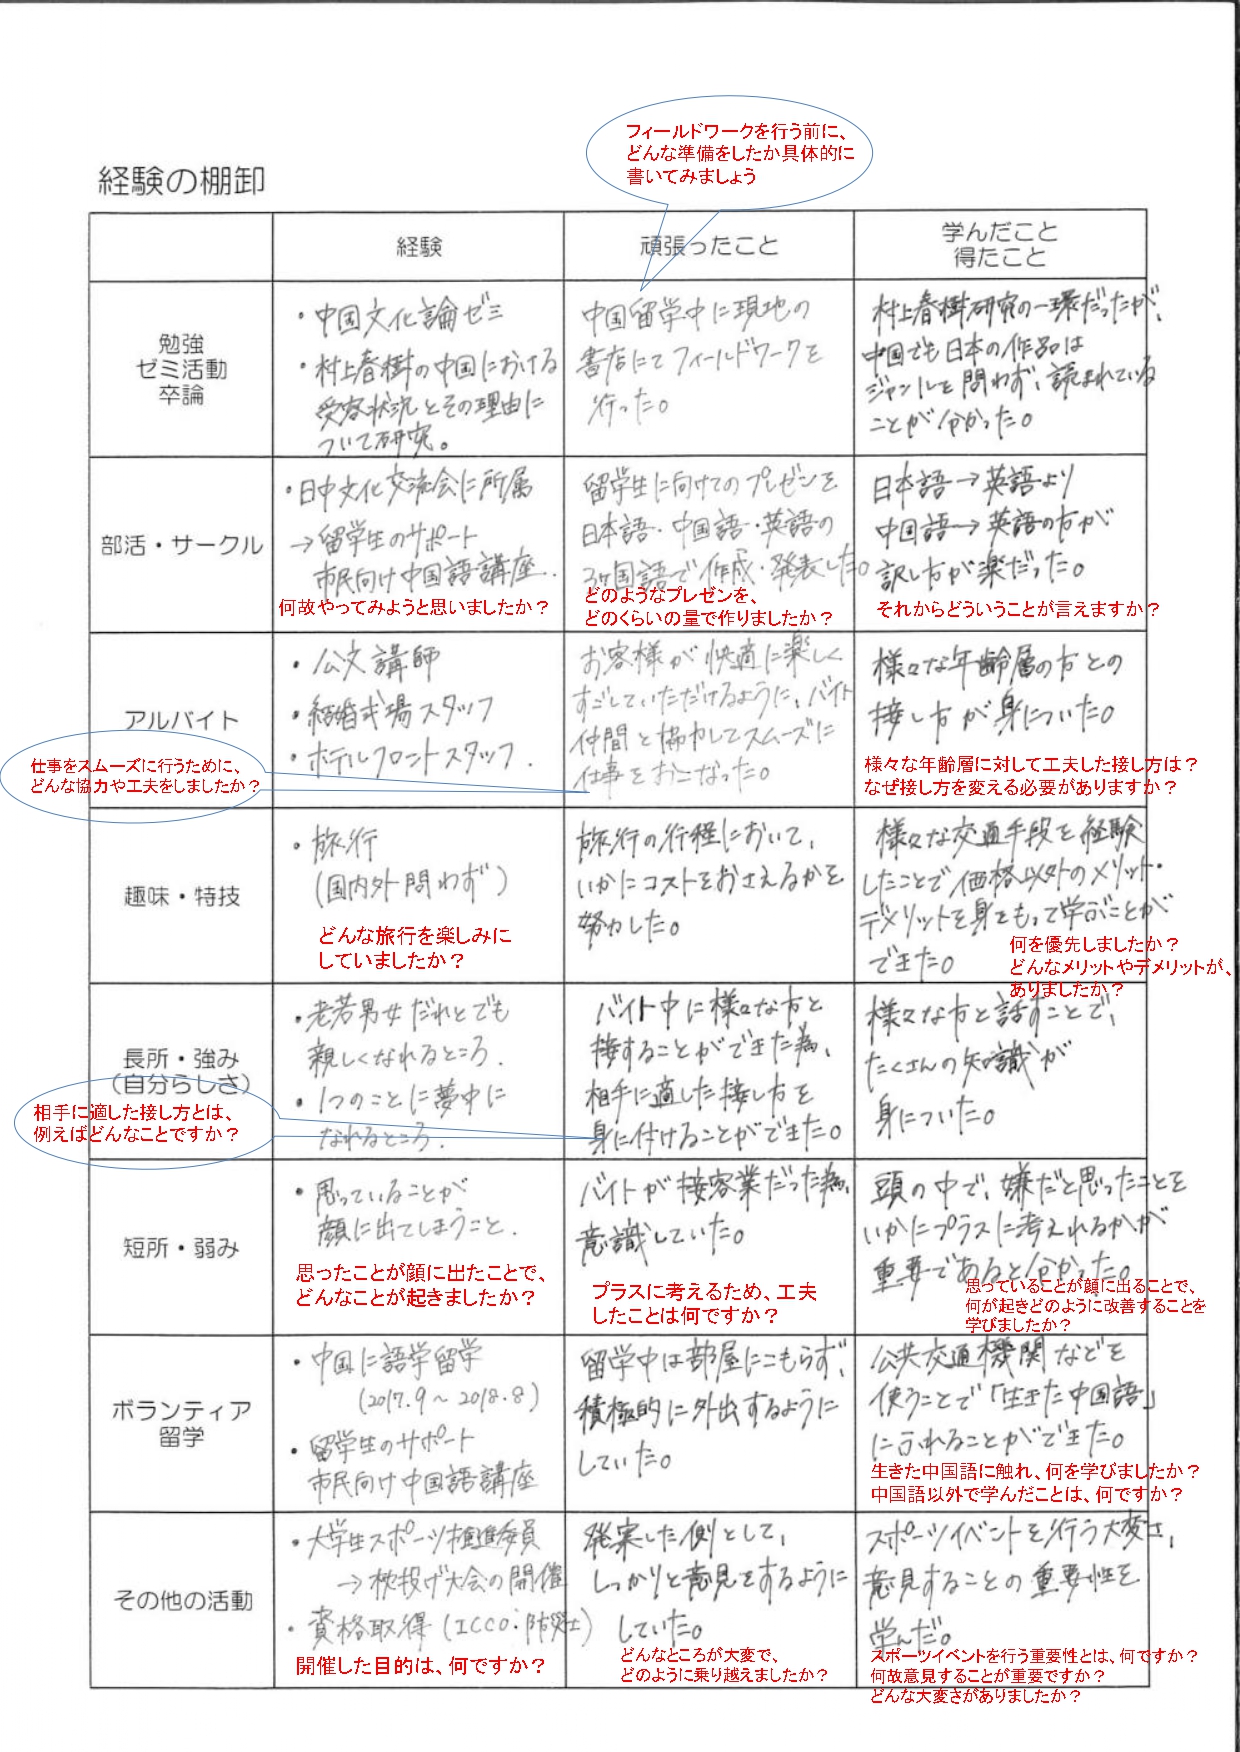 フィールドワークを行う前に、
どんな準備をしたか具体的に
書いてみましょう
経験の棚卸
経験
頑張ったこと
学んだこと
得たこと
勉強
ゼミ活動
卒論
・中国文化論ゼミ
・村上春樹の中国における
受容状況とその理由に
ついて研究。
中国留学中に現地の
書店にてフィールドワークを
行った。
村上春樹研究の一環だったが、
中国でも日本の作品は
ジャンルを問わず、読まれている
ことが分かった。
部活・サークル
・日中文化交流会に所属
→留学生のサポート
市民向け中国語講座.
何故やってみようと思いましたか？
留学生に向けてのプレゼンを
日本語・中国語・英語の
3ヶ国語で作成・発表した。
どのようなプレゼンを、
どのくらいの量で作りましたか？
日本語→英語より
中国語→英語の方が
訳し方が楽だった。
それからどういうことが言えますか？
アルバイト
・公文講師
・結婚式場スタッフ
・ホテルフロントスタッフ.
お客様が快適に楽しく
すごしていただけるように、バイト
仲間と協力してスムーズに
仕事をおこなった。
仕事をスムーズに行うために、
どんな協力や工夫をしましたか？
様々な年齢層の方との
接し方が身についた。
様々な年齢層に対して工夫した接し方は？
なぜ接し方を変える必要がありますか？
趣味・特技
・旅行
(国内外問わず)
どんな旅行を楽しみに
していましたか？
旅行の行程において、
いかにコストをおさえるかを
努力した。
様々な交通手段を経験
したことで価格以外のメリット・
デメリットを身をもって学ぶことが
できた。
何を優先しましたか？
どんなメリットやデメリットが、
ありましたか？
長所・強み
（自分らしさ）
・老若男女だれとでも
親しくなれるところ.
・1つのことに夢中に
なれるところ.
相手に適した接し方とは、
例えばどんなことですか？
バイト中に様々な方と
接することができた為、
相手に適した接し方を
身に付けることができた。
様々な方と話すことで、
たくさんの知識が
身についた。
短所・弱み
・思っていることが
顔に出てしまうこと.
思ったことが顔に出たことで、
どんなことが起きましたか？
バイトが接客業だった為、
意識していた。
プラスに考えるため、工夫
したことは何ですか？
頭の中で、嫌だと思ったことを
いかにプラスに考えれるかが
重要であると分かった。
思っていることが顔に出ることで、
何が起きどのように改善することを
学びましたか？
ボランティア
留学
・中国に語学留学
(2017.9～2018.8)
・留学生のサポート
市民向け中国語講座
留学中は部屋にこもらず、
積極的に外出するように
していた。
公共交通機関などを
使うことで「生きた中国語」
にふれることができた。
生きた中国語に触れ、何を学びましたか？
中国語以外で学んだことは、何ですか？
その他の活動
・大学生スポーツ推進委員
→枕投げ大会の開催
・資格取得(ICCO・防災士)
開催した目的は、何ですか？
発案した側として、
しっかりと意見をするように
していた。
どんなところが大変で、
どのように乗り越えましたか？
スポーツイベントを行う大変さ、
意見することの重要性を
学んだ。
スポーツイベントを行う重要性とは、何ですか？
何故意見することが重要ですか？
どんな大変さがありましたか？